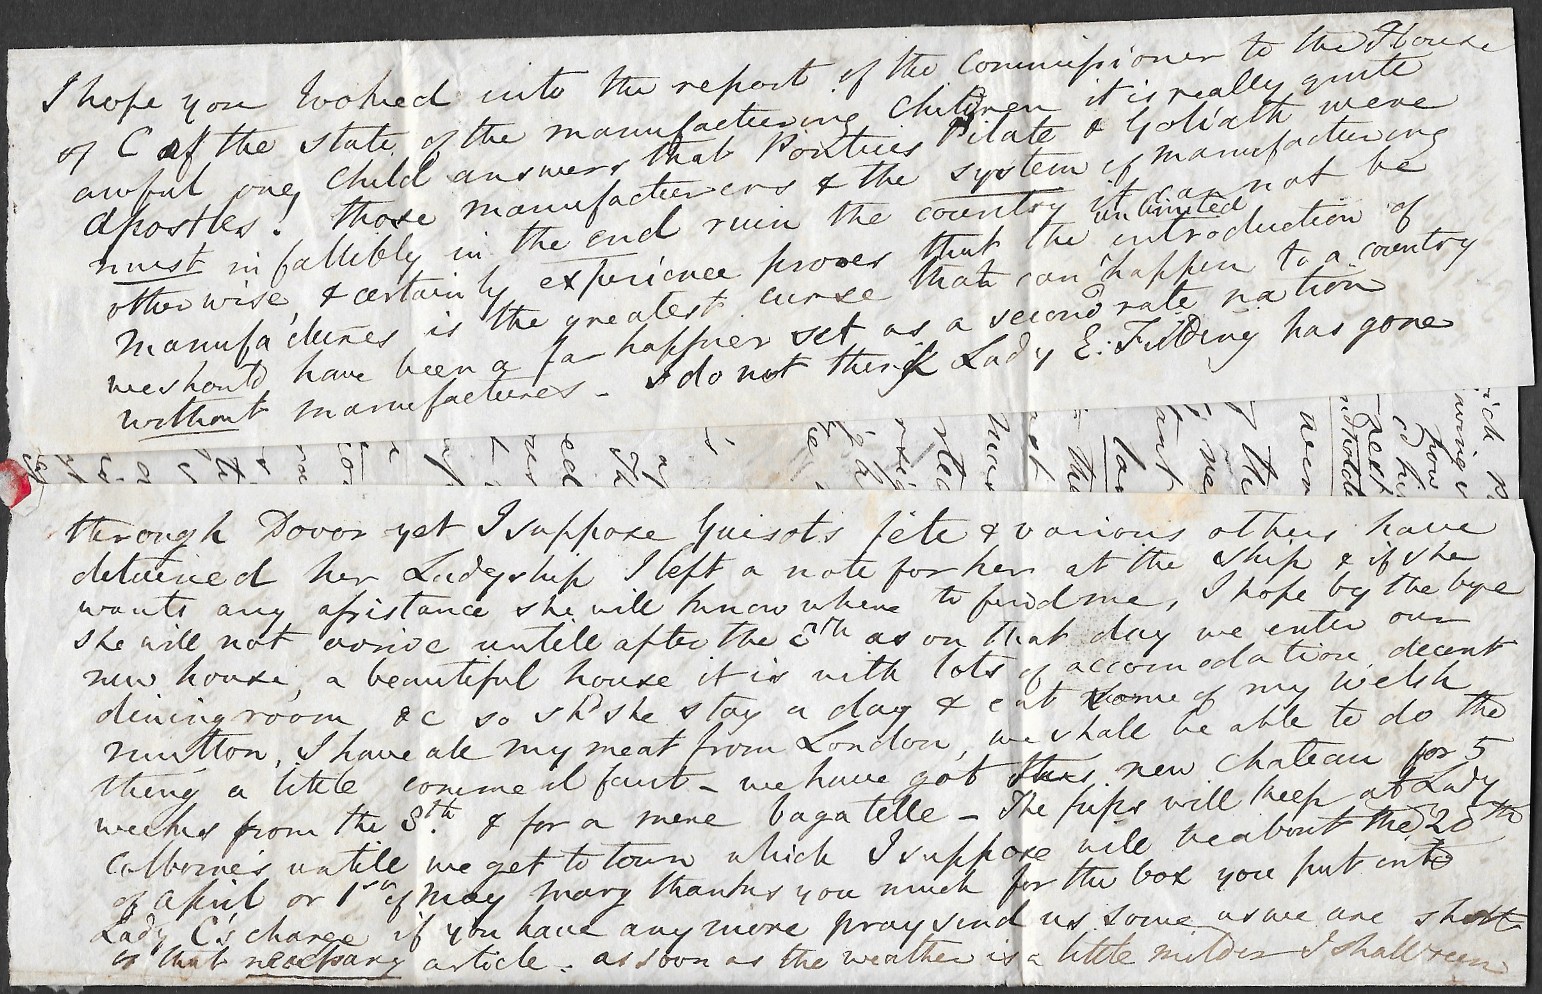 I hope you looked into the report of the Commissioner to the House
of C of the state of the manufacturing children it is really quite
awful one child answers that Pontius Pilate & Goliath were
apostles! those manufacturers & the system of manufacturing
must infallibly in the end ruin the country it can not be
otherwise, & certainly experience proves that the unlimited introduction of
manufactures is the greatest curse that can happen to a country
we should have been a far happier set as a second rate nation
without manufactures - I do not think Lady E. Feilding has gone
through Dover yet I suppose Guisots fête & various others have
detained her Ladyship I left a note for her at the Ship & if she
wants any assistance she will know where to find me, I hope by the bye
she will not arrive untill after the 8th as on that day we enter our
new house, a beautiful house it is with lots of accomodation, decent
dining room &c so shd she stay a day & eat some of my Welsh
mutton, I have all my meat from London, we shall be able to do the
thing a little comme il faut - we have got this new chateau for 5
weeks from the 8th & for a mere bagatelle - The pups will keep at Lady
Colborne's untill we get to town which I suppose will be about the 20th
of April or 1st of May mary thanks you much for the box you put into
Lady C's charge if you have any more pray send us some as we are short
of that necessary article - as soon as the weather is a little milder I shall run